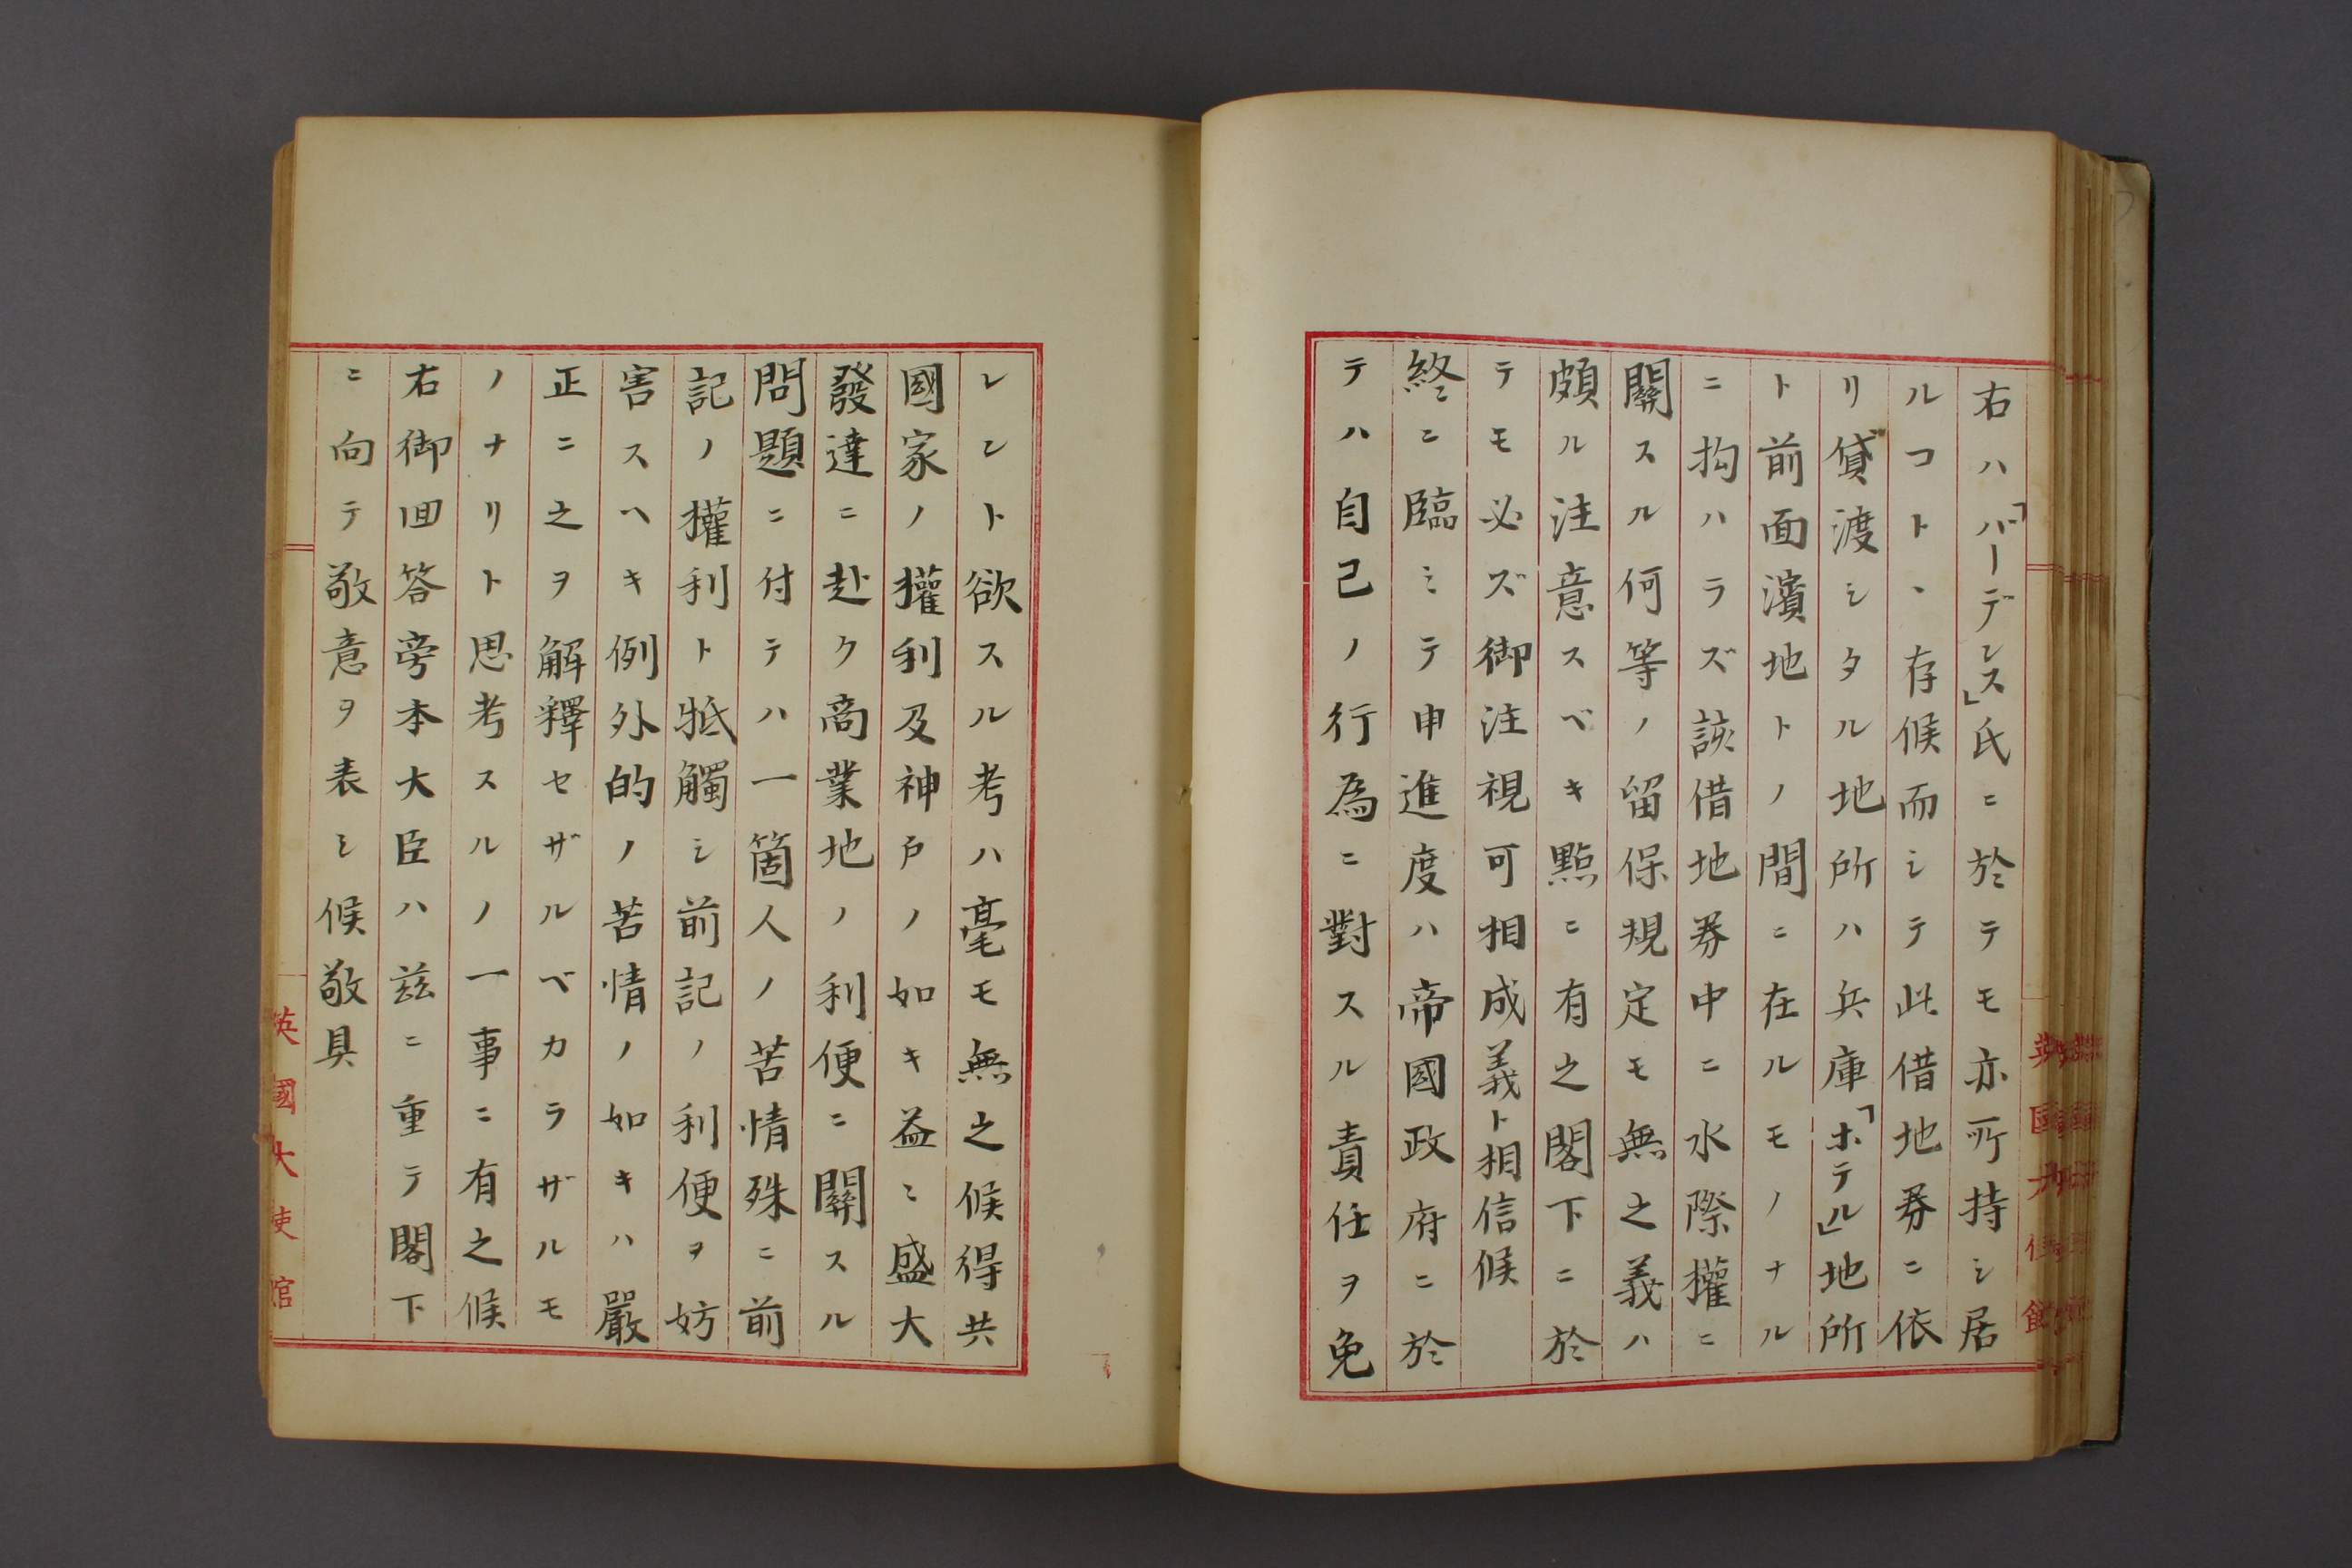 右ハ「バーデンス」氏ニ於テモ亦所持シ居
ルコトヽ存候而シテ此借地券ニ依
リ貸渡シタル地所ハ兵庫「ホテル」地所
ト前面濱地トノ間ニ在ルモノナル
ニ拘ハラズ該借地券中ニ水際權ニ
關スル何等ノ留保規定モ無之義ハ
頗ル注意スベキ點ニ有之閣下ニ於
テモ必ズ御注視可相成義ト相信候
終ニ臨ミテ申進度ハ帝國政府ニ於
テハ自己ノ行為ニ對スル責任ヲ免
レント欲スル考ハ毫モ無之候得共
國家ノ權利及神戸ノ如キ益ミ盛大
發達ニ赴ク商業地ノ利便ニ關スル
問題ニ付テハ一箇人ノ苦情殊ニ前
記ノ權利ト牴觸シ前記ノ利便ヲ妨
害スヘキ例外的ノ苦情ノ如キハ嚴
正ニ之ヲ解釋セザルベカラザルモ
ノナリト思考スルノ一事ニ有之候
右御回答旁本大臣ハ茲ニ重テ閣下
ニ向テ敬意ヲ表シ候敬具
英國大使館